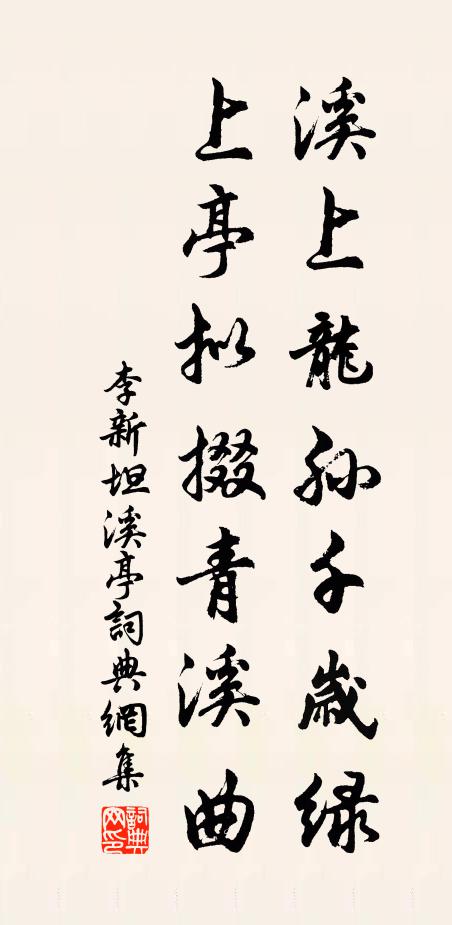 溪上龍孫千歲綠
上亭拟掇青溪曲
李新坦溪亭詞典網集
詞典網印